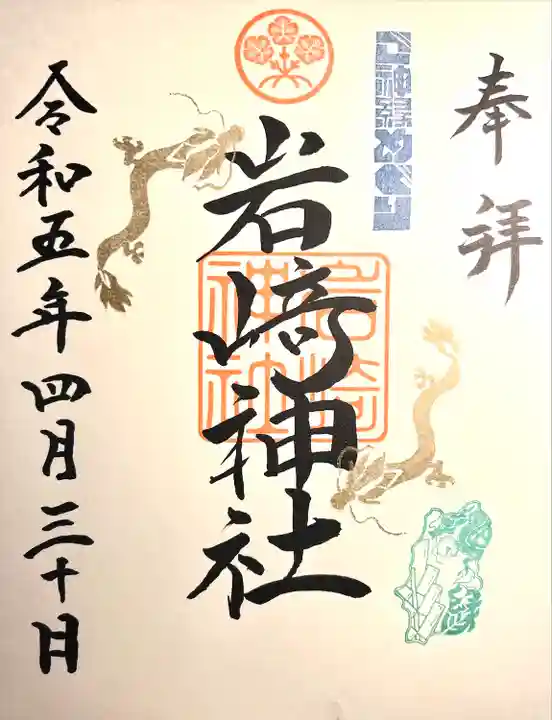 奉拝
岩﨑神社
岩崎神社
令和五年四月三十日